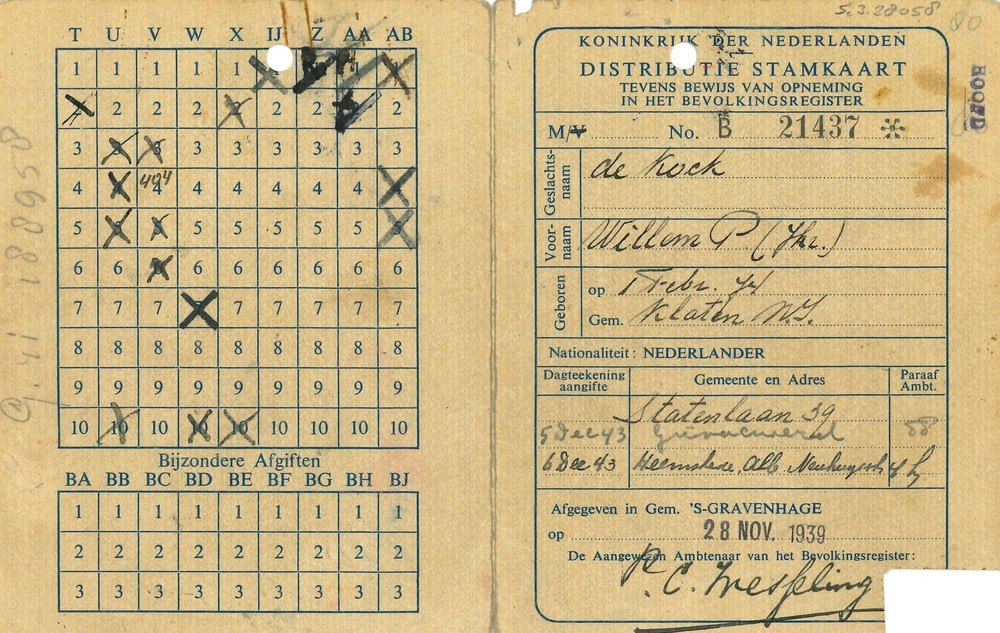 T U V W X IJ Z AA AB
1 1 1 1 1 1
2 2 2 2 2 2 2
3 3 3 3 3 3 3 3 3
4 4 404 4 4 4 4 4 4 4
5 5 5 5 5 5 5 5 5
6 6 6 6 6 6 6 6
7 7 7 7 7 7 7 7
8 8 8 8 8 8 8 8 8
9 9 9 9 9 9 9 9 9
10 10 10 10 10 10 10 10 10
Bijzondere Afgiften
BA BB BC BD BE BF BG BH BJ
1 1 1 1 1 1 1 1 1
2 2 2 2 2 2 2 2 2
3 3 3 3 3 3 3 3 3
41 188958
5.3.28058
80
HOOFD
KONINKRIJK DER NEDERLANDEN
DISTRIBUTIE STAMKAART
TEVENS BEWIJS VAN OPNEMING
IN HET BEVOLKINGSREGISTER
M/V No. B 21437
Geslachtsnaam de Kock
Voornaam Willem P (Jhr.)
Geboren op 1 Febr. 74
Gem. Klaten N.I.
Nationaliteit: NEDERLANDER
Dagteekening aangifte Gemeente en Adres Paraaf Ambt.
Statenlaan 39
5 Dec 43 Geëvacueerd
6 Dec 43 Heemstede, Alb.
Afgegeven in Gem. 'S-GRAVENHAGE
op 28 NOV. 1939
De Aangewezen Ambtenaar van het Bevolkingsregister:
C. Wesseling